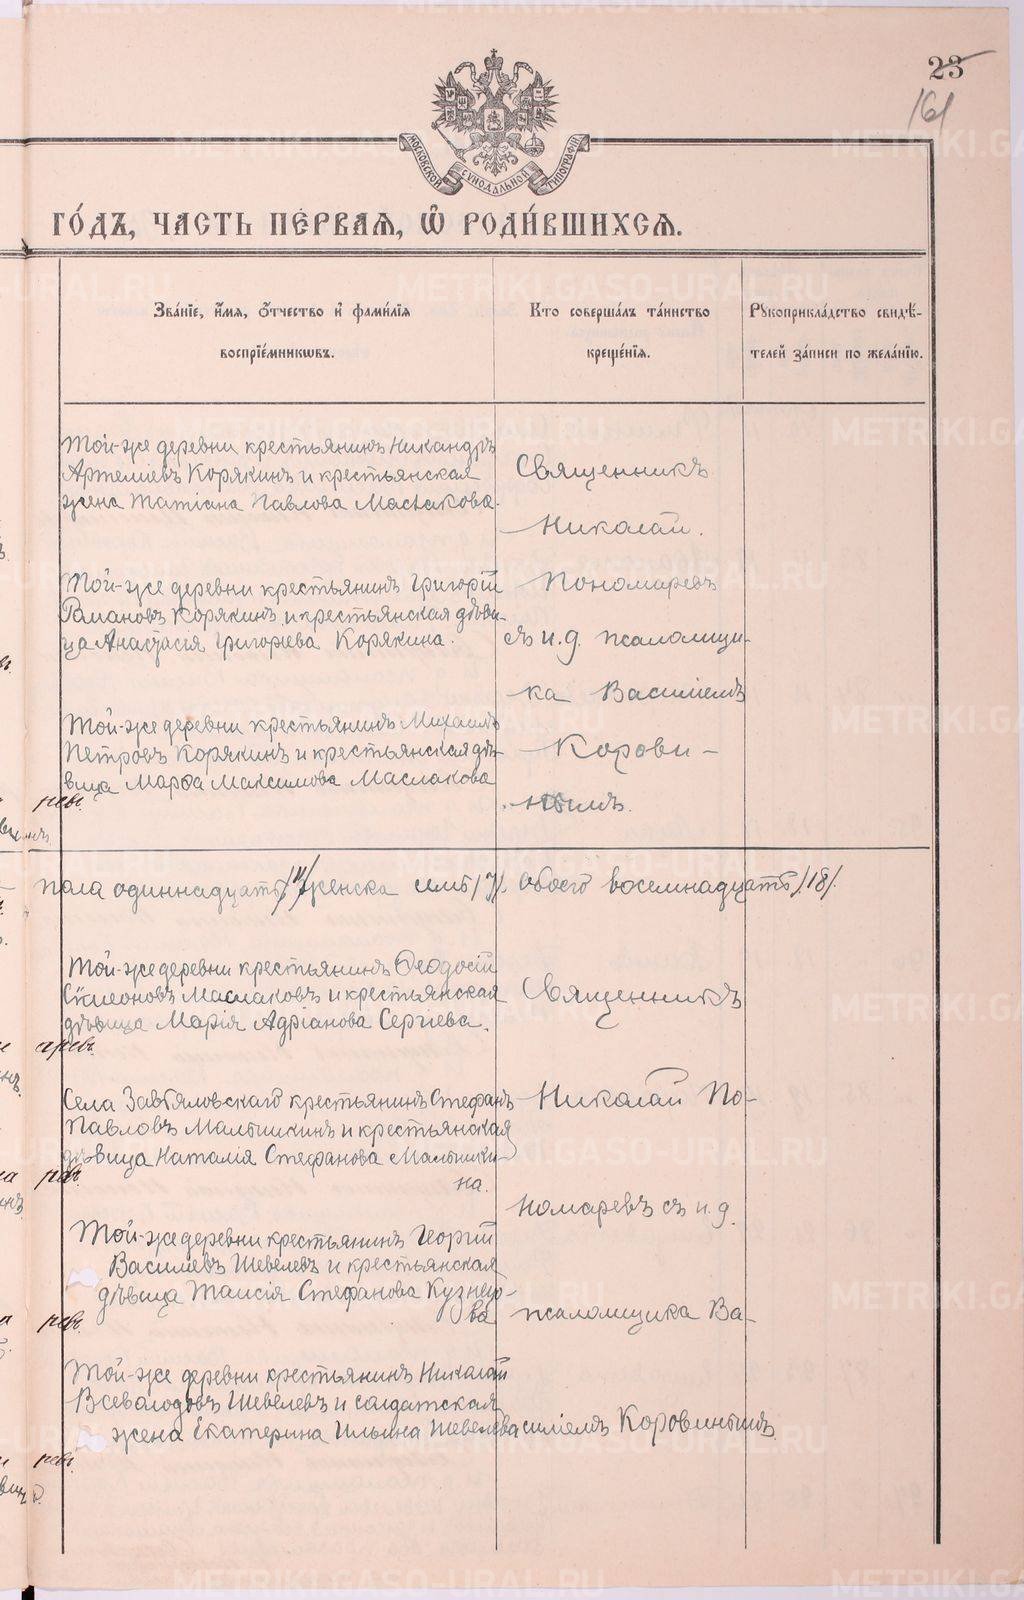 23
161
МОСКОВСКОЙ СѴНОДАЛЬНОЙ ТИПОГРАФІИ
ГО́ДЪ, ЧАСТЬ ПЕ́РВАѦ, Ѿ РОДИ́ВШИХСѦ.
Зва́нїе, и҆́мя, ѻ҆́тчество и҆ фами́лїя
воспрїе́мникѡвъ.
Кто соверша́лъ та́инство
креще́нїя.
Рꙋкоприкла́дство свидѣ́-
телей за́писи по жела́нїю.
Той-же деревни крестьянинъ Никандръ
Артеміевъ Корякинъ и крестьянская
жена Татіана Павлова Маслакова.
Священникъ
Николай.
Той-же деревни крестьянинъ Григорій
Романовъ Корякинъ и крестьянская дѣви-
ца Анастасія Григорьева Корякина.
Пономаревъ
съ и.д. псаломщи-
ка Василіемъ
Той-же деревни крестьянинъ Михаилъ
Петровъ Корякинъ и крестьянская дѣ-
вица Марѳа Максимова Маслакова
Корови-
нымъ.
ревъ.
пола одиннадцать /11/ женска семь /7/. обоего восемнадцать /18/.
Той-же деревни крестьянинъ Ѳеодосій
Симеоновъ Маслаковъ и крестьянская
дѣвица Марія Адріанова Сергіева.
Священникъ
Села Завьяловскаго крестьянинъ Стефанъ
Павловъ Малышкинъ и крестьянская
дѣвица Наталія Стефанова Малышки-
на.
Николай По-
номаревъ съ и.д.
Той-же деревни крестьянинъ Георгій
Василіевъ Шевелевъ и крестьянская
дѣвица Таисія Стефанова Кузнецо-
ва
псаломщика Ва-
Той-же деревни крестьянинъ Николай
Всеволодовъ Шевелевъ и солдатская
жена Екатерина Ильина Шевелева
силіемъ Коровинымъ.
METRIKI.GASO-URAL.RU